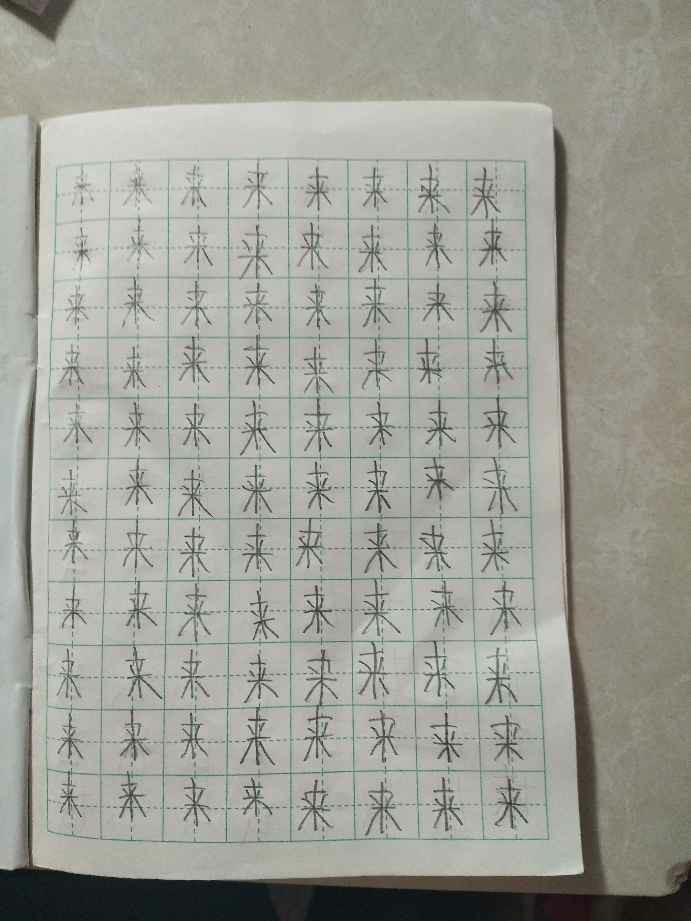 来来来来来来来来
来来来来来来来来
来来来来来来来来
来来来来来来来来
来来来来来来来来
来来来来来来来来
来来来来来来来来
来来来来来来来来
来来来来来来来来
来来来来来来来来
来来来来来来来来